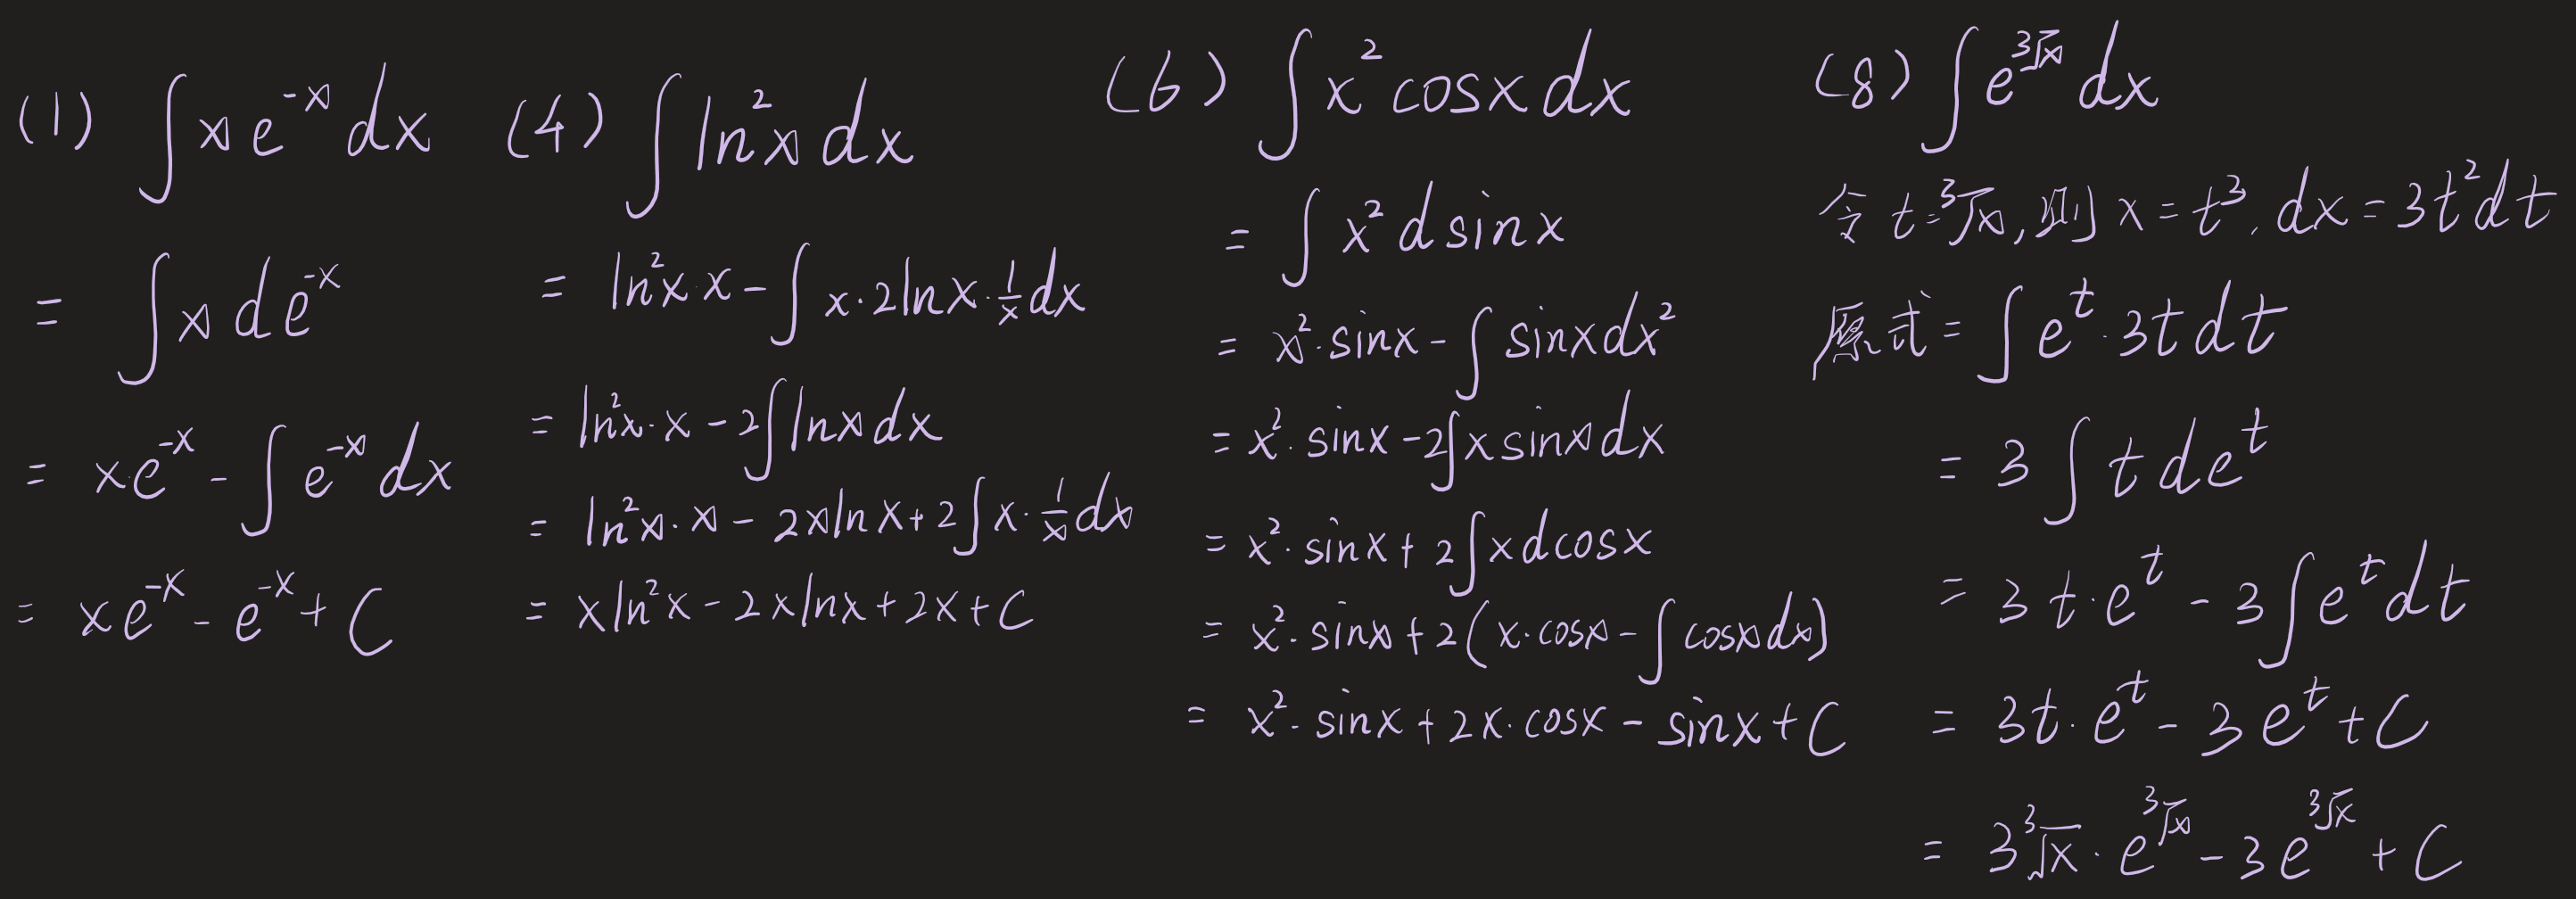 (1) ∫ x e^{-x} dx
= ∫ x d e^{-x}
= x e^{-x} - ∫ e^{-x} dx
= x e^{-x} - e^{-x} + C
(4) ∫ ln²x dx
= ln²x · x - ∫ x · 2lnx · 1/x dx
= ln²x · x - 2∫ lnx dx
= ln²x · x - 2xlnx + 2∫ x · 1/x dx
= xln²x - 2xlnx + 2x + C
(6) ∫ x² cosx dx
= ∫ x² d sinx
= x² · sinx - ∫ sinx dx²
= x² · sinx - 2∫ x sinx dx
= x² · sinx + 2∫ x d cosx
= x² · sinx + 2(x · cosx - ∫ cosx dx)
= x² · sinx + 2x · cosx - sinx + C
(8) ∫ e^{∛x} dx
令 t = ∛x, 则 x = t³, dx = 3t² dt
原式 = ∫ e^t · 3t dt
= 3 ∫ t d e^t
= 3t · e^t - 3∫ e^t dt
= 3t · e^t - 3e^t + C
= 3∛x · e^{∛x} - 3e^{∛x} + C